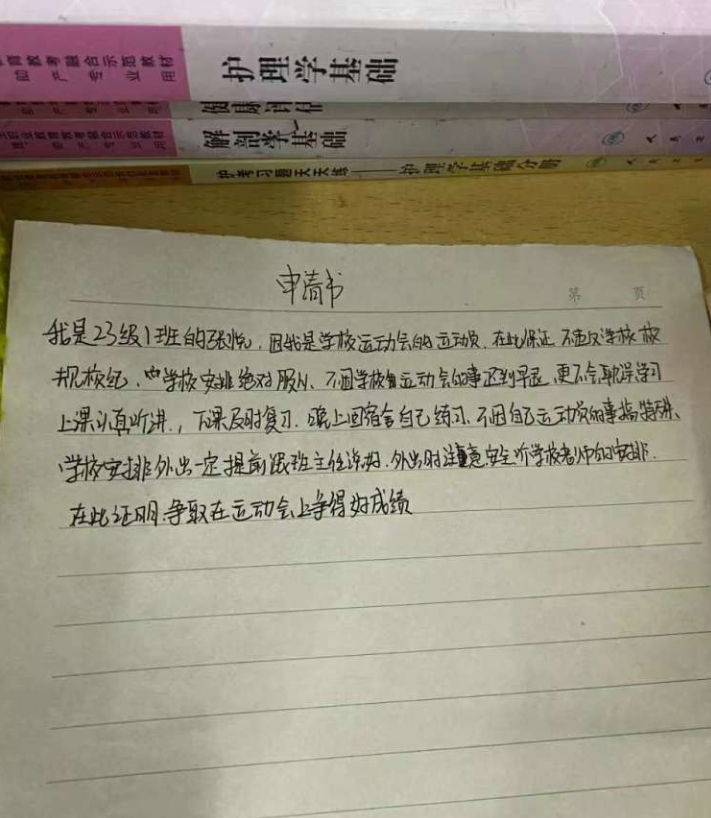 育教考融合示范教材
助 产 专 业 用
护理学基础
健康评估
解剖学基础
护考习题天天练——护理学基础分册
申请书
第 页
我是23级1班的张悦，因我是学校运动会的运动员，在此保证不违反学校校
规校纪，学校安排绝对服从、不因学校运动会的事迟到早退，更不会耽误学习
上课认真听讲，下课及时复习，晚上回宿舍自己练习，不因自己运动员的事搞特殊、
学校安排外出一定提前跟班主任说好，外出时注意安全听学校老师的安排.
在此证明，争取在运动会上争得好成绩